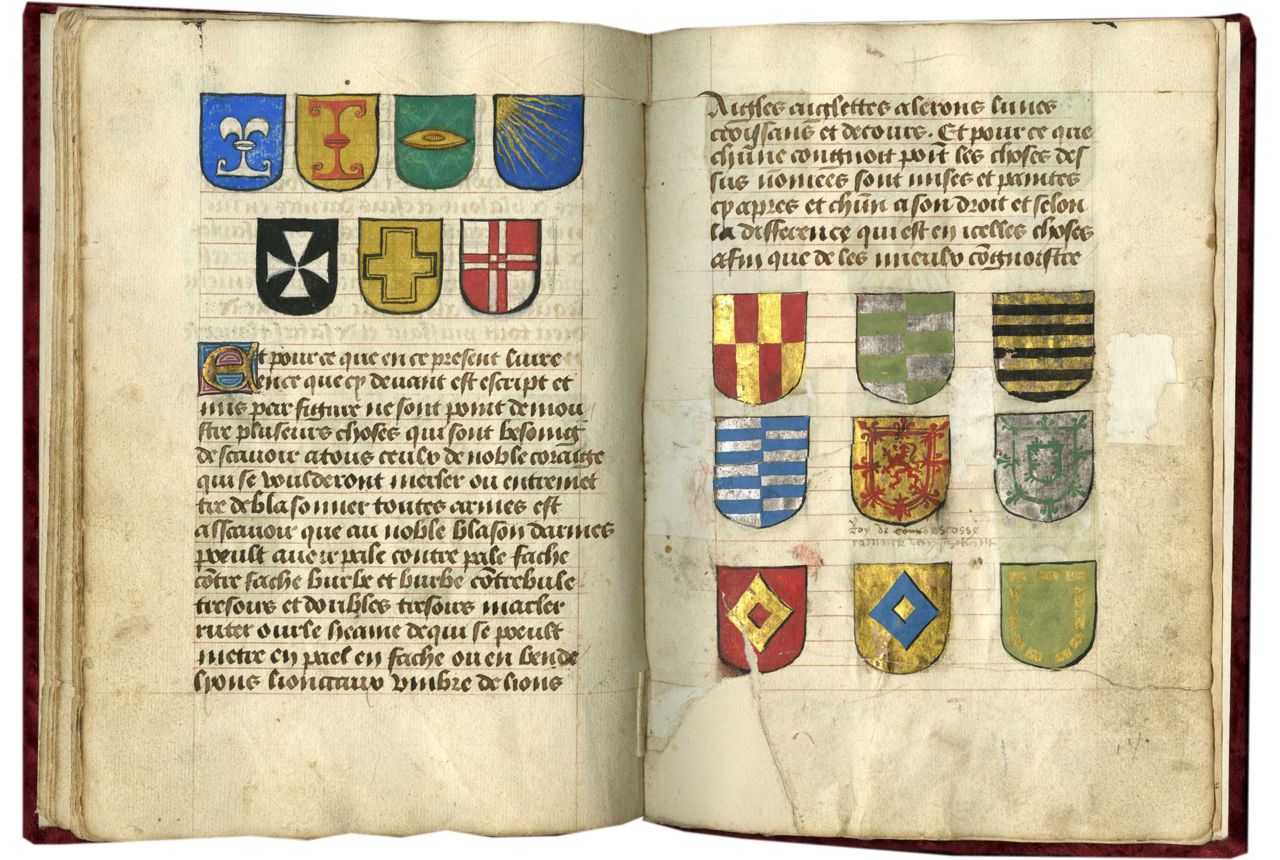 Et pour ce que en ce present livre
ence que cy devant est escript et
mis par figure ne sont point demou
stre pluseurs choses qui sont besoing
de scavoir a tous ceulx de noble coraige
qui se voulderont mesler ou entremet
tre de blasonner toutes armes est
assavoir que au noble blason darmes
poeult avoir pale contre pale fache
cõtre fache burbe et burbe cõtrebule
tresours et doubles tresours macler
ruter ourle heame de qui se poeult
metre en pael en fache ou en bende
lyons lionceaux umbre de lions
Aigles aiglettes alerons lunes
croissans et decours. Et pour ce que
chũne congnoit poĩt les choses des
sus nõmees sont mises et paintes
cy apres et chũn a son droit et selon
la difference qui est en icelles choses
afin que de les mieulx cõgnoistre
Roy de escosse